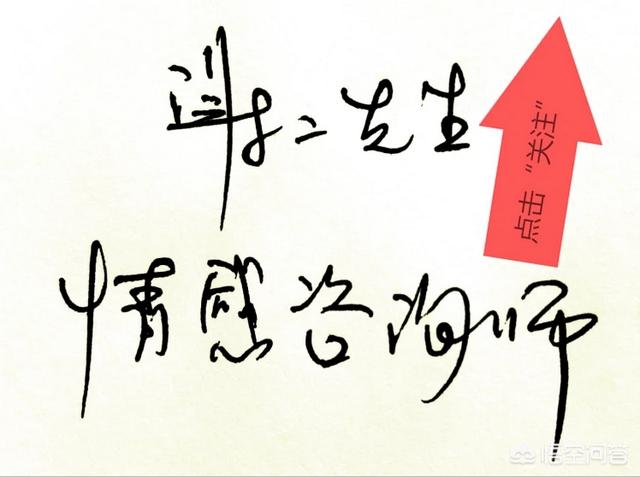 谢二先生
情感咨询师
点击“关注”
悟空问答